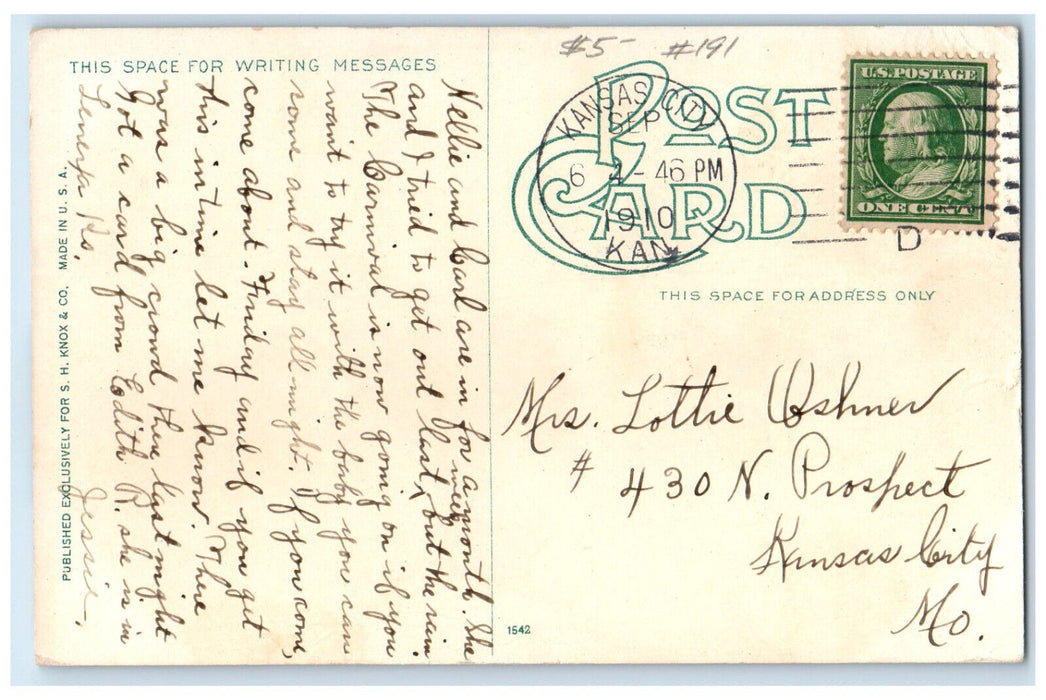 $5- #191
THIS SPACE FOR WRITING MESSAGES
POST CARD
KANSAS CITY
SEP
6 4-46 PM
1910
KAN.
U.S. POSTAGE
ONE CENT
D
THIS SPACE FOR ADDRESS ONLY
Nellie and Carl are in for a month. She
and I tried to get out last week, but the rain.
The Carnival is now going on if you
want to try it with the baby you can
come and stay all night. If you come,
come about Friday and if you get
this in time let me know. There
was a big crowd there last night
Got a card from Edith R. she is in
Lenexa Ks, Jessie.
Mrs. Lottie
# 430 N. Prospect
Kansas City
Mo.
PUBLISHED EXCLUSIVELY FOR S. H. KNOX & CO. MADE IN U. S. A.
1542